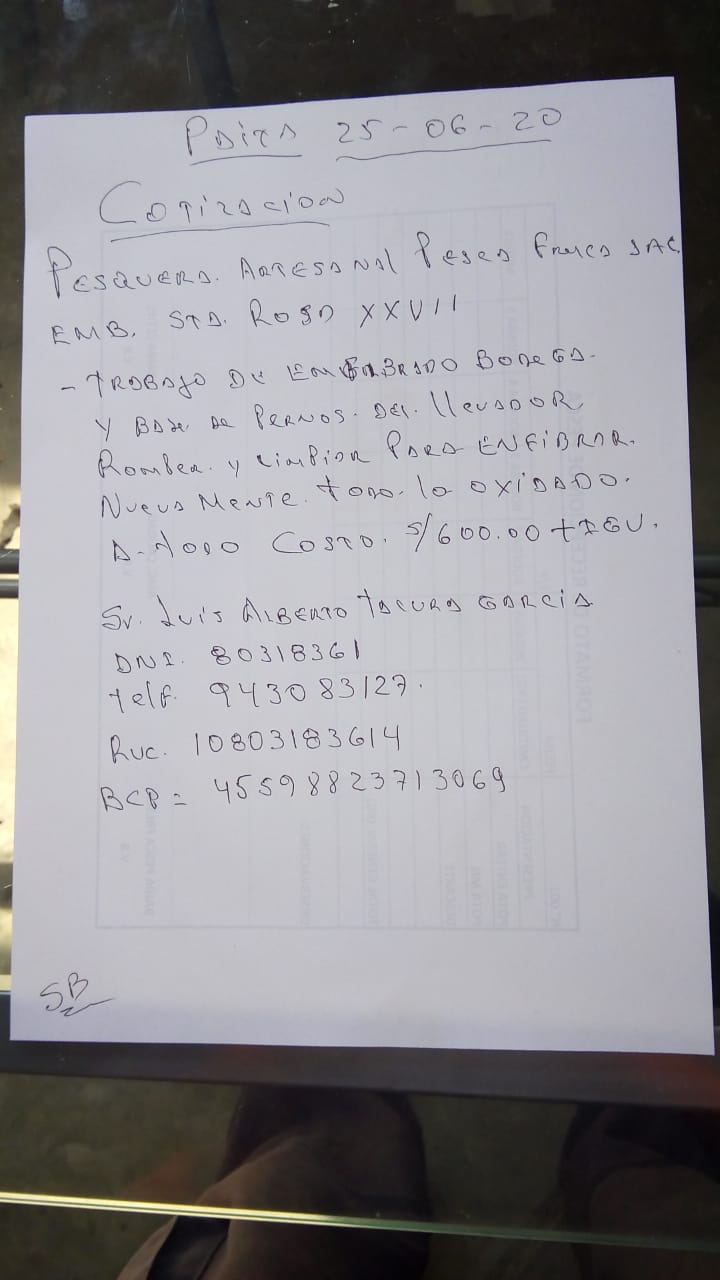 Paita 25-06-20
Cotizacion
Pesquera. Artesanal Pesca Fresca SAC
EMB. Sta. Rosa XXVII
- Trabajo de Enfibrado Bodega.
y Base de Pernos. Del. llevador
Romber. y limpiar Para Enfibrar.
Nueva Mente. todo. lo oxidado.
A. todo Costo. S/600.00 + IGV.
Sr. Luis Alberto Tacura Garcia
DNI. 80318361
telf. 943083127.
Ruc. 10803183614
BCP = 45598823713069
SB